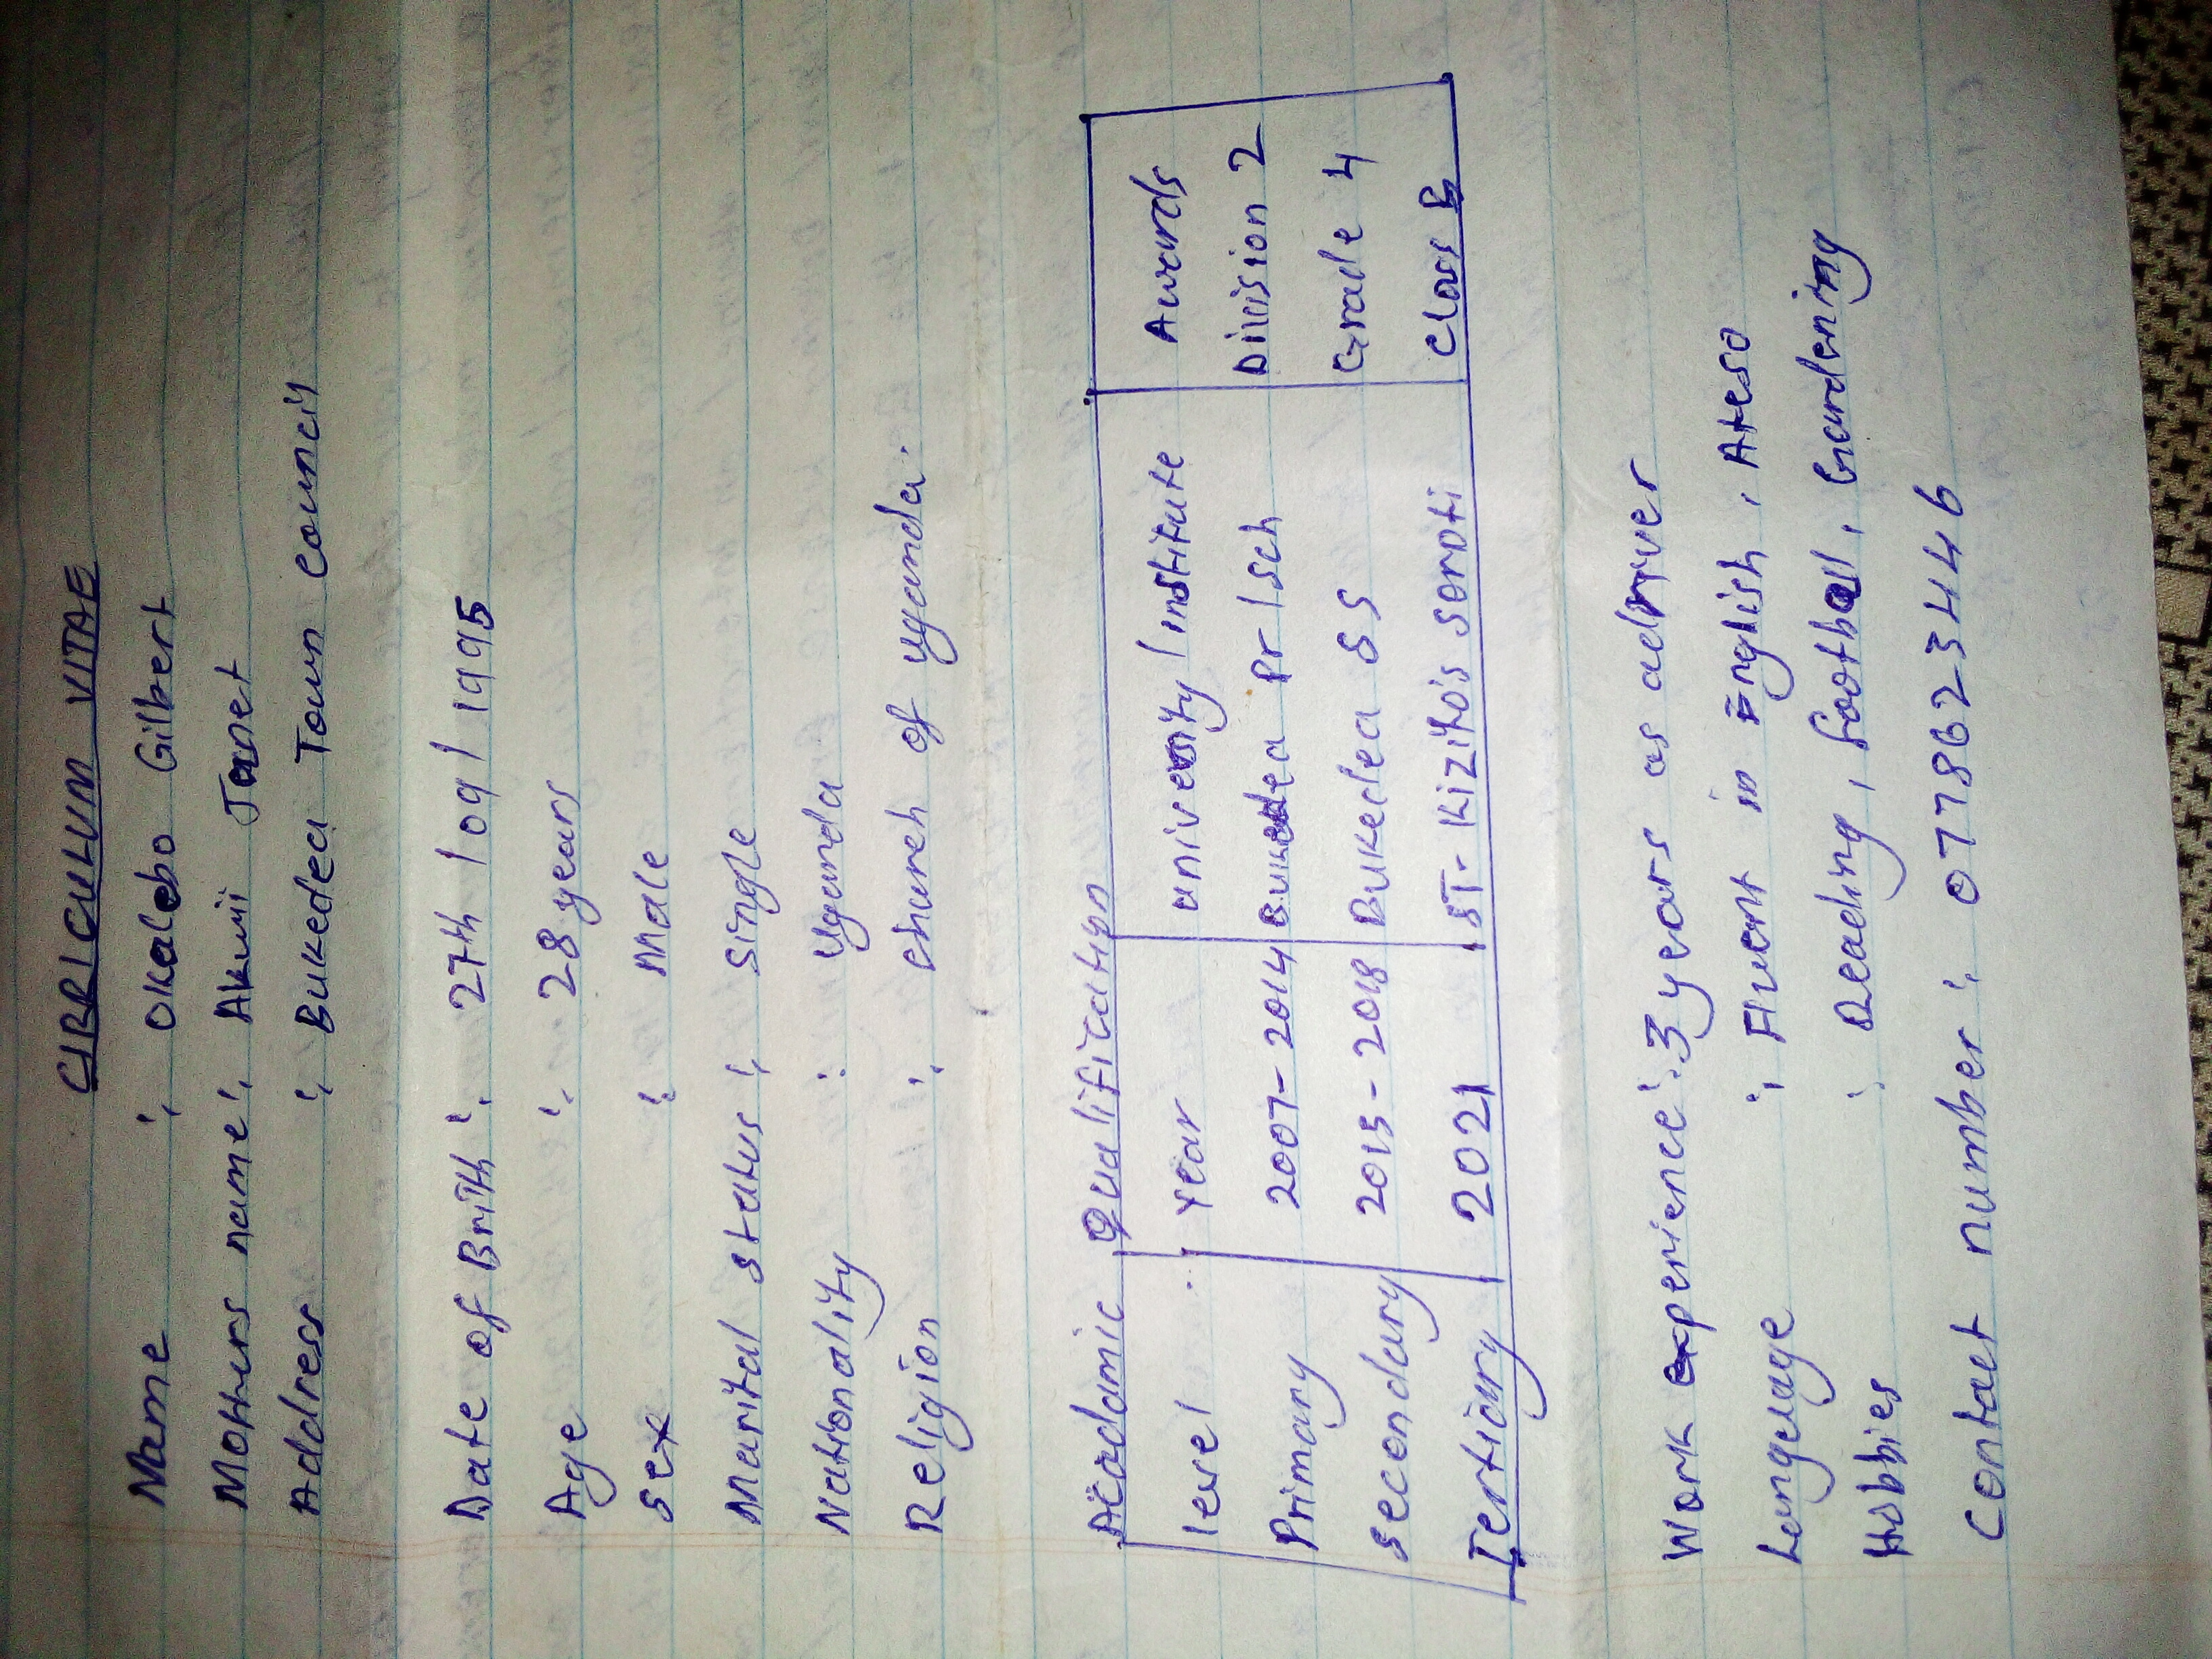 CIRRICULUM VITAE
Name : Okalebo Gilbert
Mothers name : Akurii Janet
Address : Bukedea Town council
Date of Brith : 27th / 09 / 1995
Age : 28 years
Sex : Male
Marital status : single
Nationality : Uganda
Religion : church of uganda.
Acadamic Qualification
level Year univesity / institute Awards
Primary 2007 - 2014 Bukedea pr / sch Division 2
secondary 2015 - 2018 Bukedea SS Grade 4
Tertiary 2021 ST - Kizito's soroti Class B
Work experience : 3 years as adriver
Language : Fluent in English, Ateso
Hobbies : Reading, football, Gardening
Contact number : 0778623446